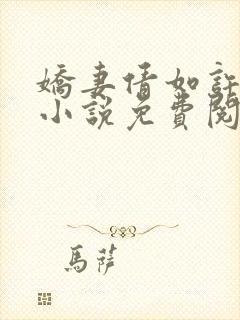 嬌妻情如許
小說免費閱
馬薩